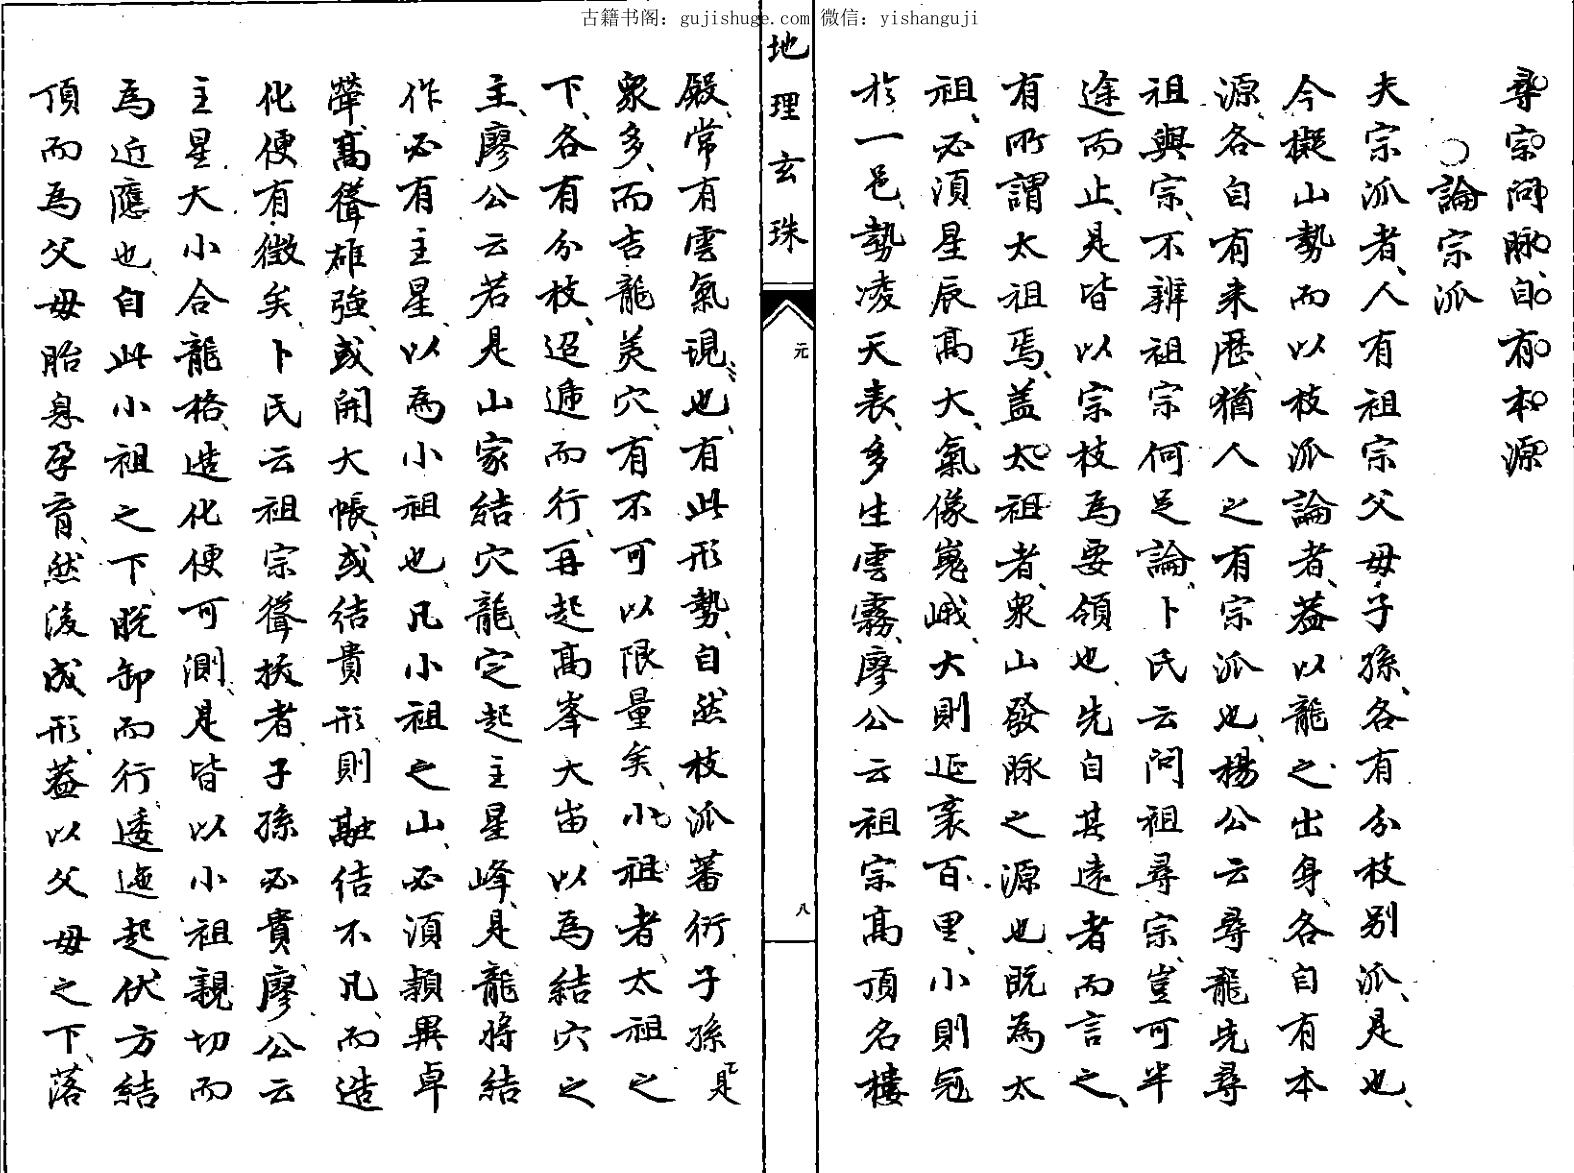 古籍书阁：gujishuge.com 微信：yishanguji
尋宗問脉自有本源
○論宗派
夫宗派者人有祖宗父母子孫各有分枝别派是也
今擬山勢而以枝派論者葢以龍之出身各自有本
源各自有来歷猶人之有宗派也楊公云尋龍先尋
祖與宗不辨祖宗何足論卜氏云問祖尋宗豈可半
途而止是皆以宗枝為要領也先自其遠者而言之
有所謂太祖焉蓋太祖者衆山發脉之源也既為太
祖必須星辰高大氣像嵬峨大則延袤百里小則冠
於一邑勢凌天表多生雲霧廖公云祖宗高頂名樓
地理玄珠
元
八
殿常有雲氣現也有此形勢自然枝派蕃衍子孫是
衆多而吉龍美穴有不可以限量矣小祖者太祖之
下各有分枝迢遞而行再起高峯大畨以為結穴之
主廖公云若是山家結穴龍定起主星峰是龍將結
作必有主星以為小祖也凡小祖之山必須頴異卓
犖高聳雄強或開大帳或結貴形則融结不凡而造
化便有徵矣卜氏云祖宗聳拔者子孫必貴廖公云
主星大小合龍格造化便可測是皆以小祖親切而
為近應也自此小祖之下脱卸而行逶迤起伏方結
頂而為父母胎息孕育然後成形葢以父母之下落